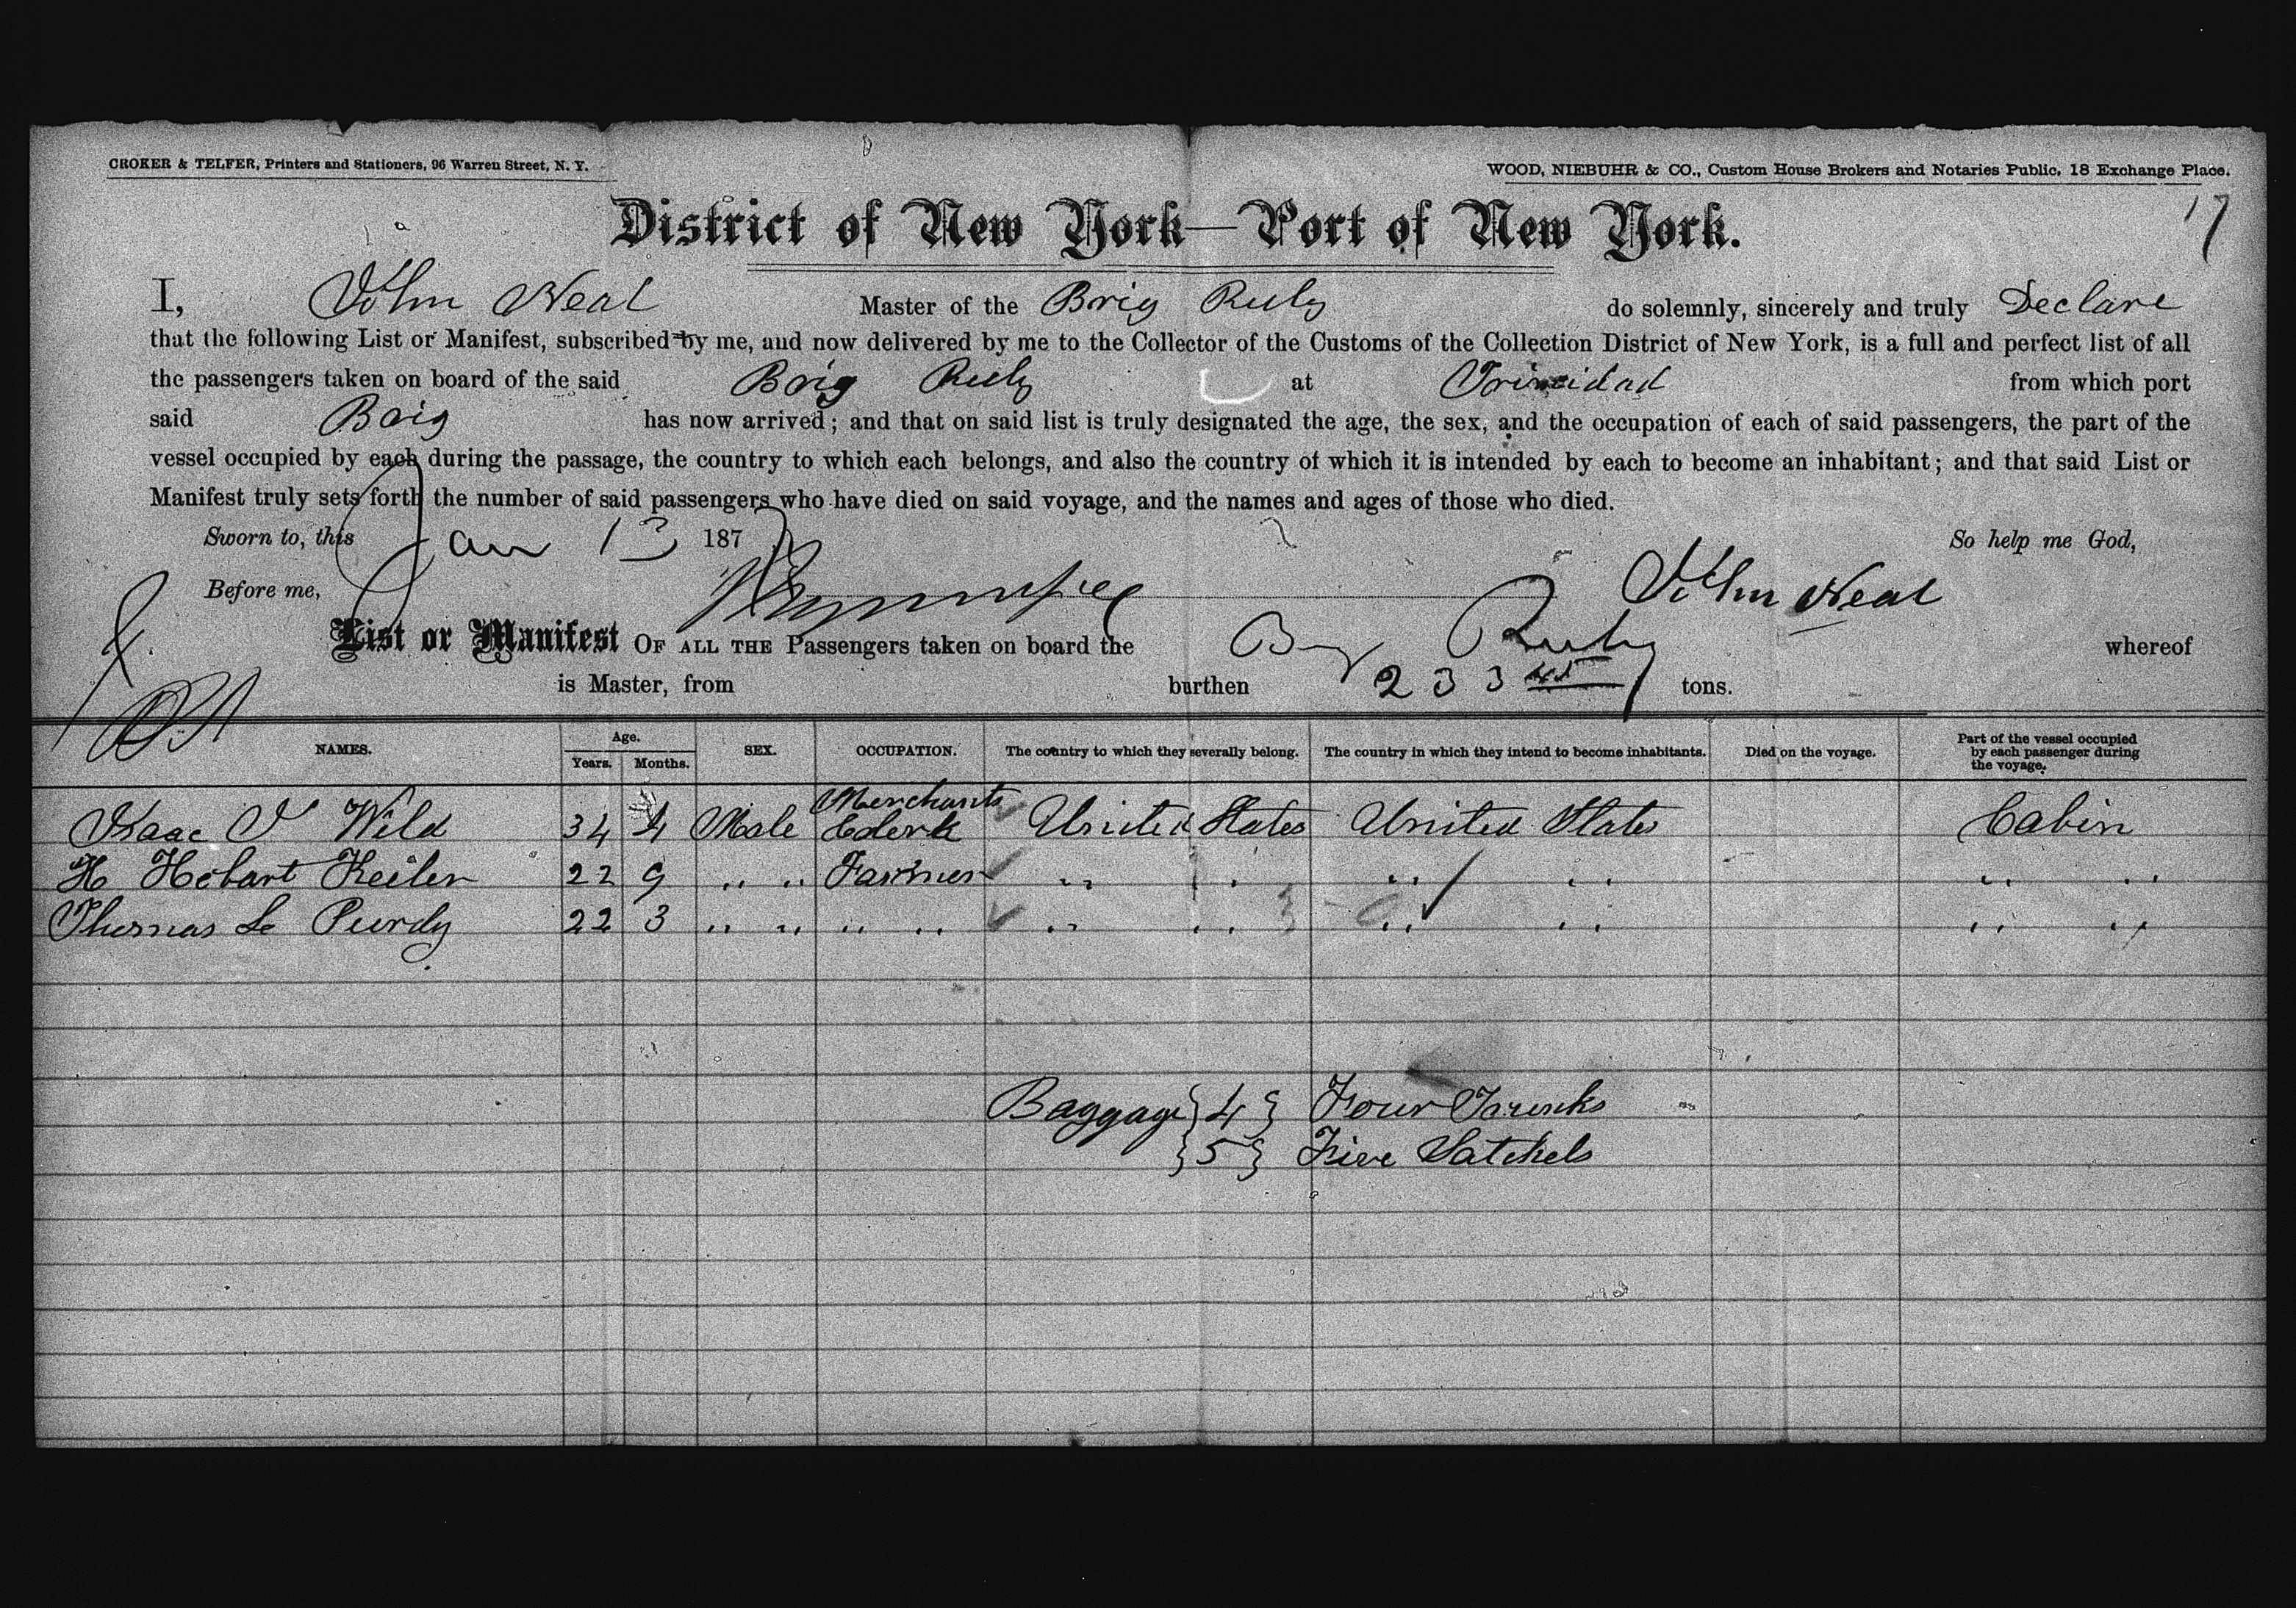 CROKER & TELFER, Printers and Stationers, 96 Warren Street, N. Y.
WOOD, NIEBUHR & CO., Custom House Brokers and Notaries Public, 18 Exchange Place.
17
District of New York—Port of New York.
I, John Neal Master of the Brig Ruby do solemnly, sincerely and truly Declare
that the following List or Manifest, subscribed by me, and now delivered by me to the Collector of the Customs of the Collection District of New York, is a full and perfect list of all
the passengers taken on board of the said Brig Ruby at Trinidad from which port
said Brig has now arrived; and that on said list is truly designated the age, the sex, and the occupation of each of said passengers, the part of the
vessel occupied by each during the passage, the country to which each belongs, and also the country of which it is intended by each to become an inhabitant; and that said List or
Manifest truly sets forth the number of said passengers who have died on said voyage, and the names and ages of those who died.
Sworn to, this Jan 13 187 So help me God,
Before me, John Neal
List or Manifest OF ALL THE Passengers taken on board the Brig Ruby whereof
is Master, from burthen 233 45 tons.
NAMES. Age. Years. Months. SEX. OCCUPATION. The country to which they severally belong. The country in which they intend to become inhabitants. Died on the voyage. Part of the vessel occupied by each passenger during the voyage.
Isaac Wild 34 4 Male Merchants Clerk United States United States Cabin
H Hobart Keiler 22 9 " " Farmer " " " " " "
Thomas Purdy 22 3 " " " " " " " " " "
Baggage } 4 } Four Trunks
} 5 } Five Satchels